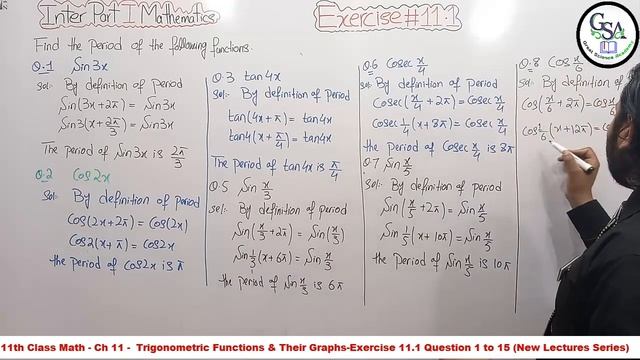 Inter Part I Mathematics
Exercise #11.1
GSA
Find the Period of the following functions.
Q.1 Sin3x
Sol:- By definition of Period
Sin(3x+2π) = Sin3x
Sin3(x+2π/3) = Sin3x
The period of Sin3x is 2π/3
Q.2 Cos2x
Sol:- By definition of period
Cos(2x+2π) = Cos(2x)
Cos2(x+π) = Cos2x
the period of Cos2x is π
Q.3 tan4x
Sol:- By definition of Period
tan(4x+π) = tan4x
tan4(x+π/4) = tan4x
The Period of tan4x is π/4
Q.5 Sin x/3
Sol:- By definition of period
Sin(x/3+2π) = Sin(x/3)
Sin 1/3(x+6π) = Sin x/3
the period of Sin x/3 is 6π
Q.6 Cosec x/4
Sol:- By definition of Period
Cosec(x/4+2π) = Cosec x/4
Cosec 1/4(x+8π) = Cosec(x/4)
the period of Cosec x/4 is 8π
Q.7 Sin x/5
Sol:- By definition of period
Sin(x/5+2π) = Sin x/5
Sin 1/5(x+10π) = Sin x/5
the Period of Sin x/5 is 10π
Q.8 Cos x/6
Sol:- By definition of
Cos(x/6+2π) = Cos x/6
Cos 1/6(x+12π) =
11th Class Math - Ch 11 - Trigonometric Functions & Their Graphs-Exercise 11.1 Question 1 to 15 (New Lectures Series)